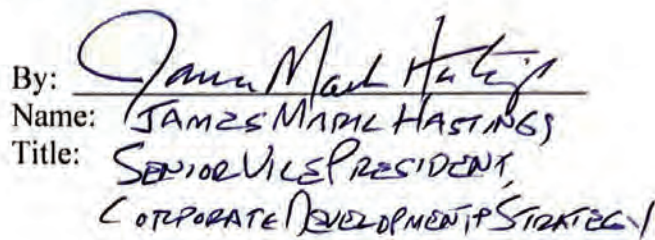 By: James Mark Hastings
Name: JAMES MARK HASTINGS
Title: SENIOR VICE PRESIDENT,
CORPORATE DEVELOPMENT & STRATEGY